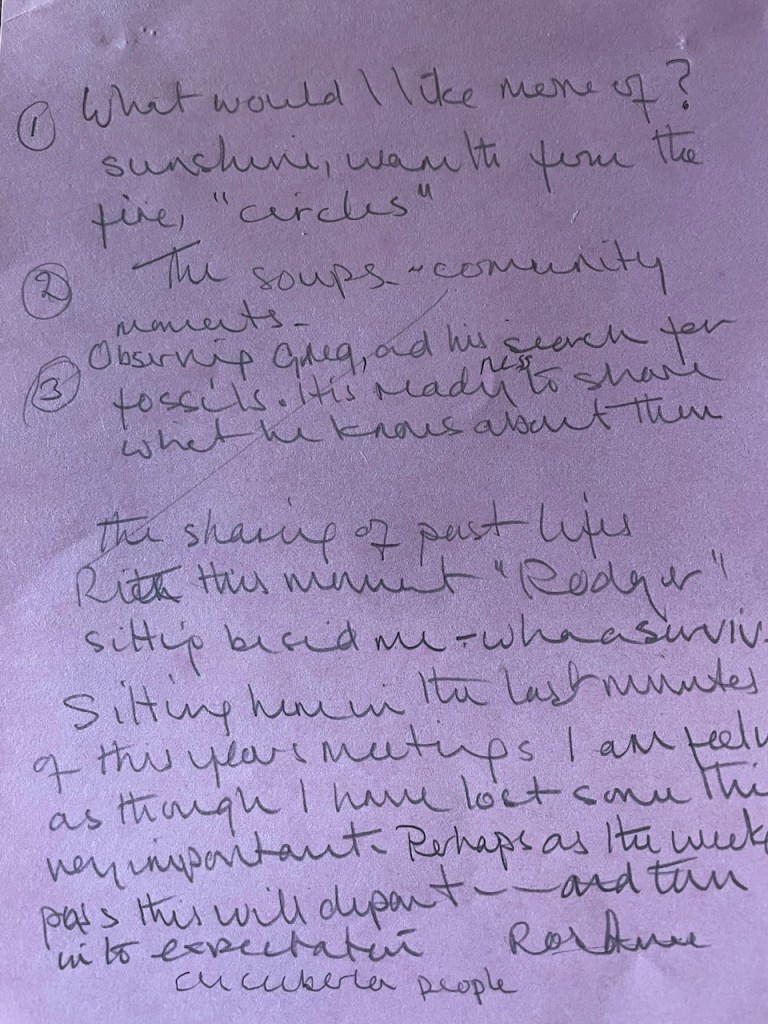 ① What would I like more of?
sunshine, warmth from the
fire, "circles"
② The soups - comunity
moments -
③ Observing Greg, and his search for
fossils. His readyness to share
what he knows about them
the sharing of past lifes
this moment "Rodger"
sitting besid me - wha a surviv
Sitting here in the last minutes
of this years meetings I am feelin
as though I have lost some thi
very important. Perhaps as the week
pass this will depart -- and turn
in to expectation Ros Anne
people